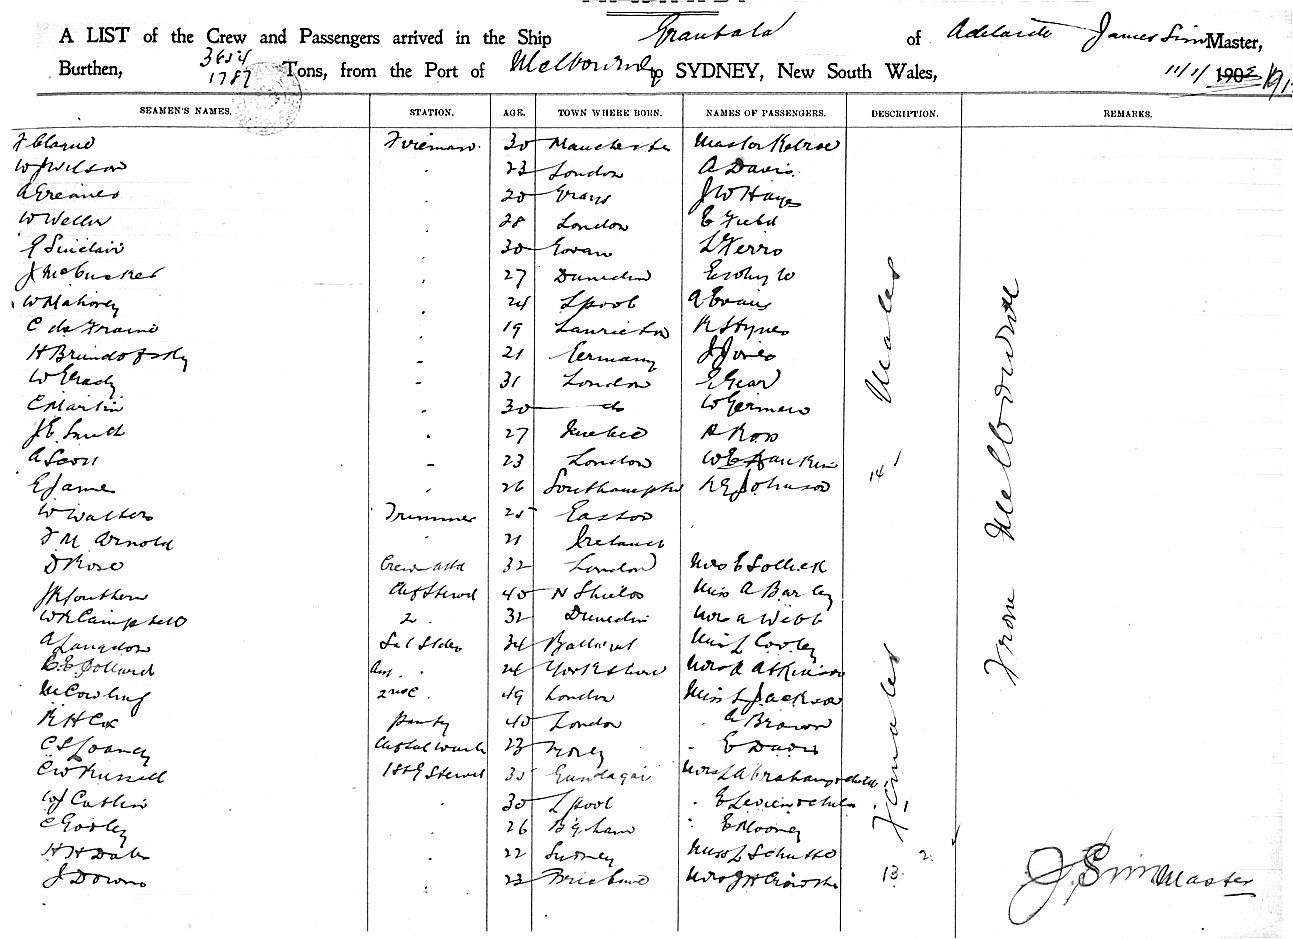 A LIST of the Crew and Passengers arrived in the Ship Grantala of Adelaide James Sim Master,
Burthen, 3654 1787 Tons, from the Port of Melbourne to SYDNEY, New South Wales, 11/1/ 191
SEAMEN'S NAMES. STATION. AGE. TOWN WHERE BORN. NAMES OF PASSENGERS. DESCRIPTION. REMARKS.
Fireman 30 Manchester Master
W J Wilson 23 London A Davis
A Greaves 20 Grays J W Hayes
W Weller 28 London E Field
Sinclair 30 Govan L Ferro
J McCusker 27 Dunedin
W Mahoney 24 Lpool A Evans
C de Fraine 19 Laurieton R Hynes
H 21 Germany J Jones
W Grady 31 London E Gear
C Martin 30 do W
J E Smith 27 Quebec A Ross
A Scott 23 London W E Rankin
E James 26 Southampton Johnson
W Walters Trimmer 25 Easton
F M Arnold 21 Ireland
D Rose Crew Attd 32 London Mrs E
Southern Chf Stewd 40 N Shields Miss A Barley
W R Campbell 2 32 Dunedin Mrs A Webb
A Langdon Sal Stdess 34 Ballarat Miss L Cooley
C E Pollard Ass. 24 Yorkshire Mrs A Atkinson
M Cowling 2nd C. 49 London Miss L Jackson
R H Cox pantry 40 London Brown
C S Loaney 23 E Davis
C W Russell 1st G Steward 35 Gundagai Mrs L Abrahams & child
W J Catlin 30 Lpool E Levien & child
C 26 B'gham E Mooney
H H Dale 22 Sydney Miss L Schutte
J Downs 23 Brisbane Mrs J H
14 Males
13 Females 2
From Melbourne
J. Sim Master